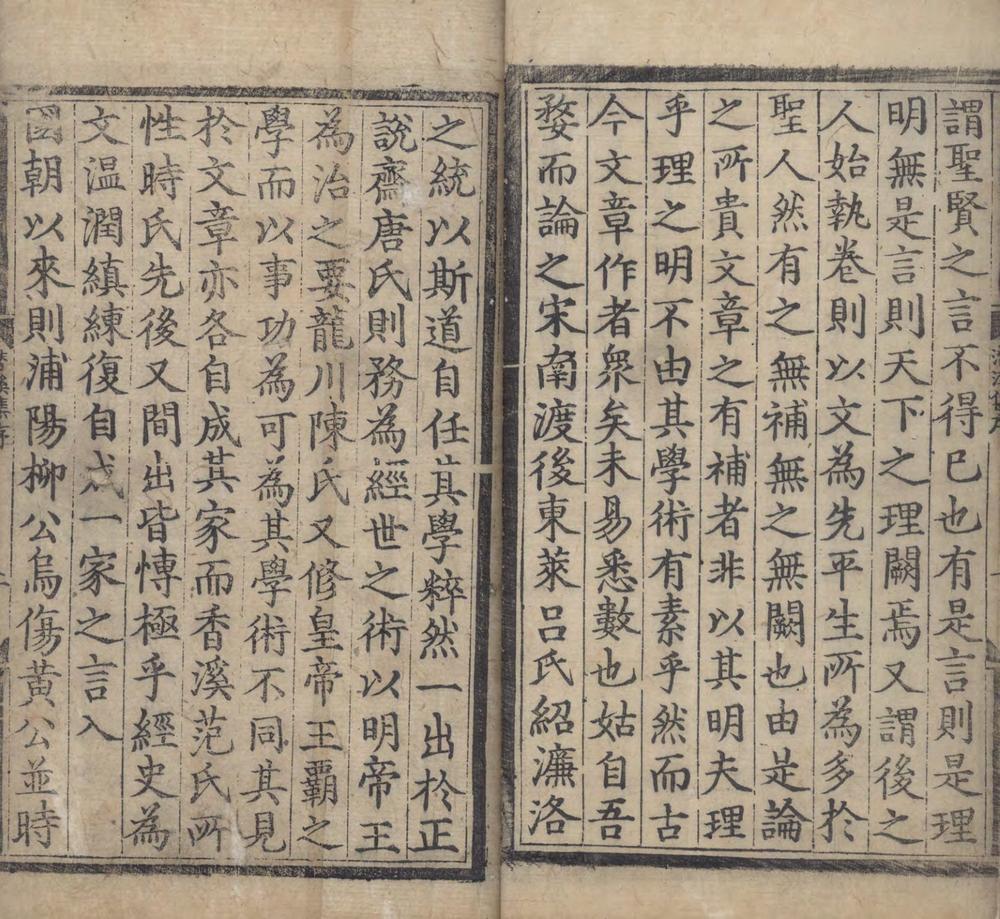 謂聖賢之言不得已也有是言則是理
明無是言則天下之理闕焉又謂後之
人始執卷則以文為先平生所為多於
聖人然有之無補無之無闕也由是論
之所貴文章之有補者非以其明夫理
乎理之明不由其學術有素乎然而古
今文章作者衆矣未易悉數也姑自吾
婺而論之宋南渡後東萊呂氏紹濂洛
之統以斯道自任其學粹然一出於正
說齋唐氏則務為經世之術以明帝王
為治之要龍川陳氏又修皇帝王霸之
學而以事功為可為其學術不同其見
於文章亦各自成其家而香溪范氏所
性時氏先後又間出皆愽極乎經史為
文温潤縝練復自成一家之言入
國朝以來則浦陽柳公烏傷黃公並時